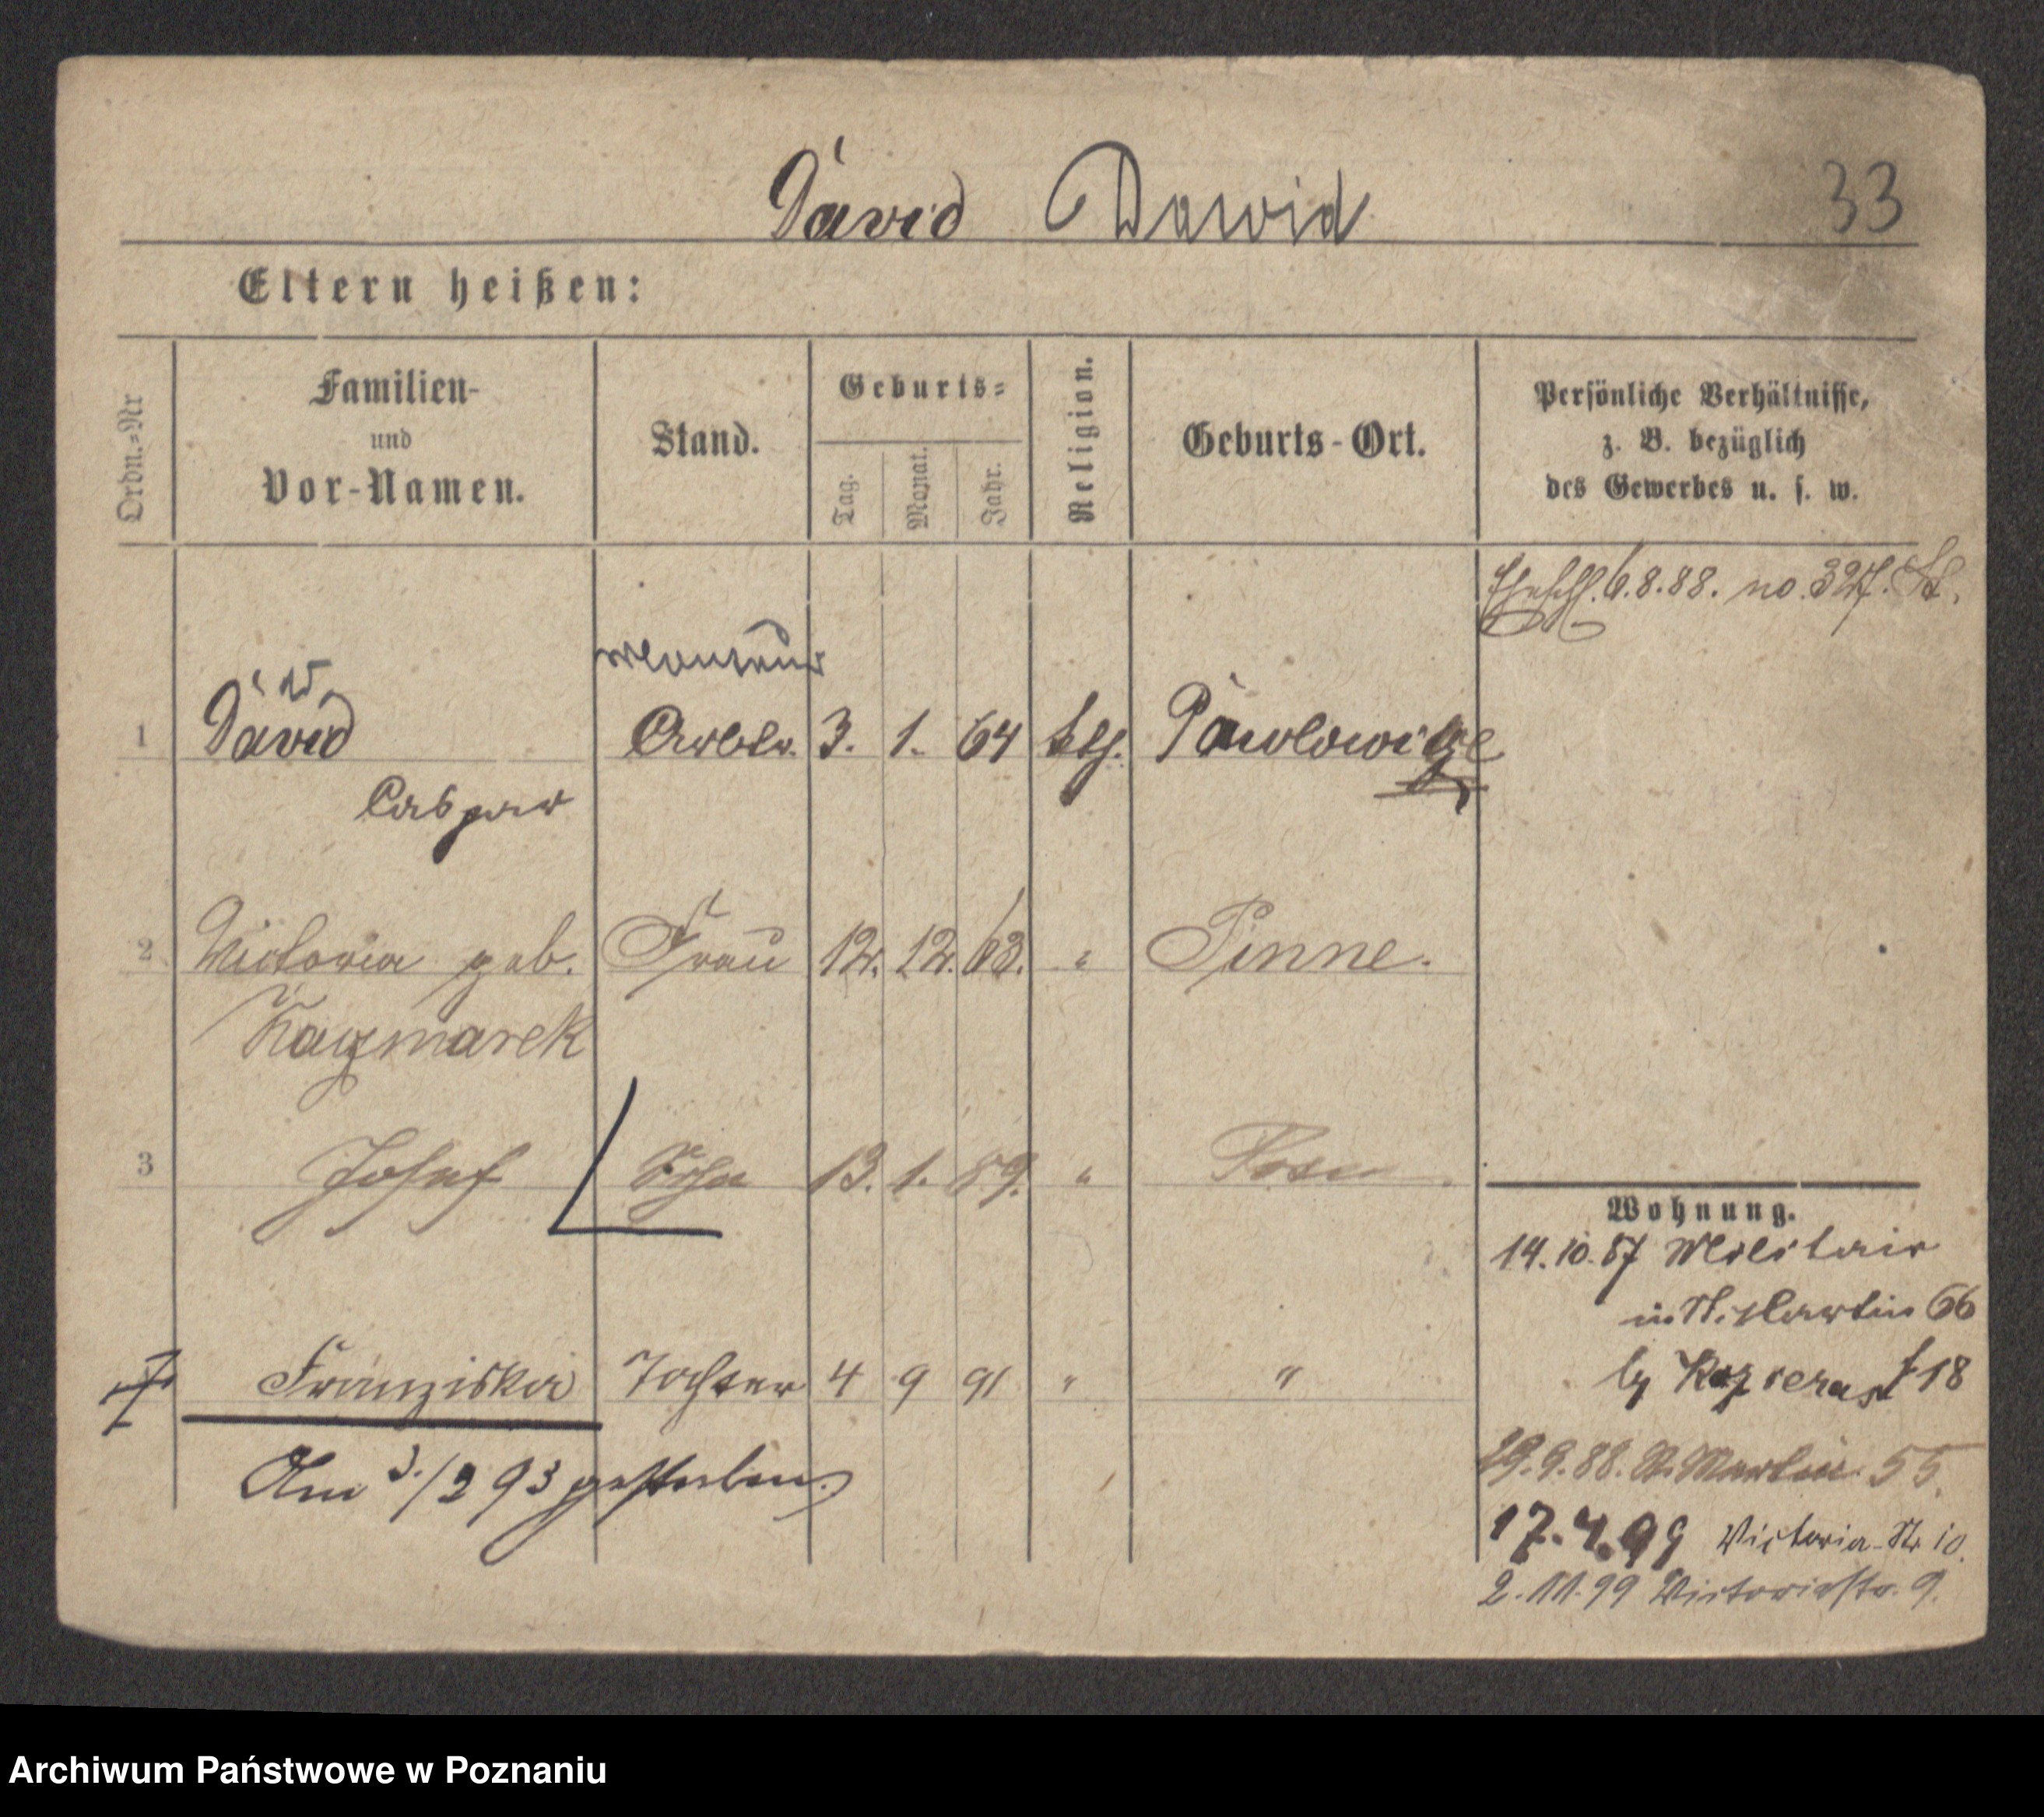 David Dawid 33
Eltern heißen:
Ordn.=Nr
Familien-
und
Vor-Namen.
Stand.
Geburts=
Tag.
Monat.
Jahr.
Religion.
Geburts-Ort.
Persönliche Verhältnisse,
z. B. bezüglich
des Gewerbes u. s. w.
Eheschl. 6.8.88. no. 327. St.
Monteur
w
1 David Arbtr. 3. 1. 64 ktl. Pawlowice
Caspar
2 Victoria geb. Frau 12. 12. 63. " Pinne.
Kaczmarek
3 Josef Sohn 13. 1. 89. " Posen
Wohnung.
14.10.87 Militair
in St. Martin 66
18
Franziska Tochter 4 9 91 " "
29.9.88. St. Martin 55.
Am 3./2 93 gestorben.
17.4.99 Victoria-Str 10.
2.11.99 Victoriastr. 9.
Archiwum Państwowe w Poznaniu